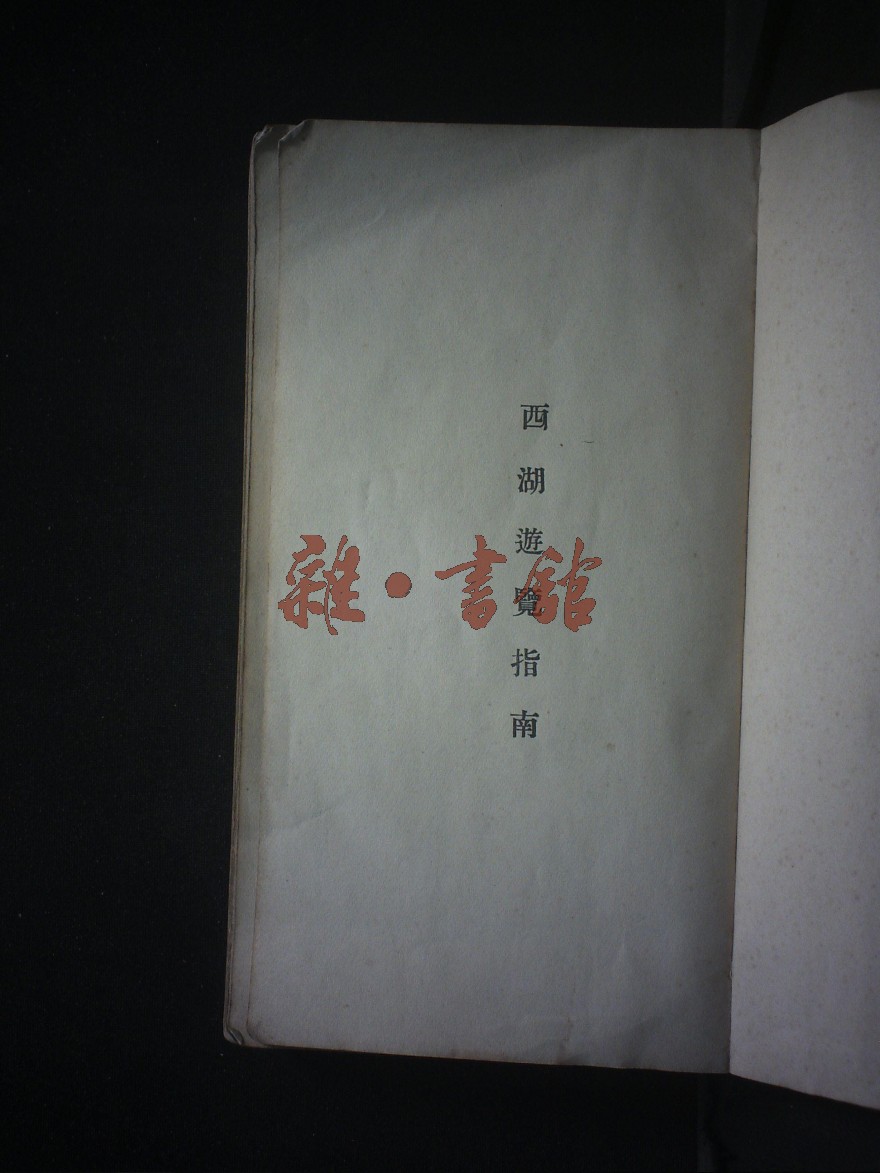 西湖遊覽指南
雜·書館